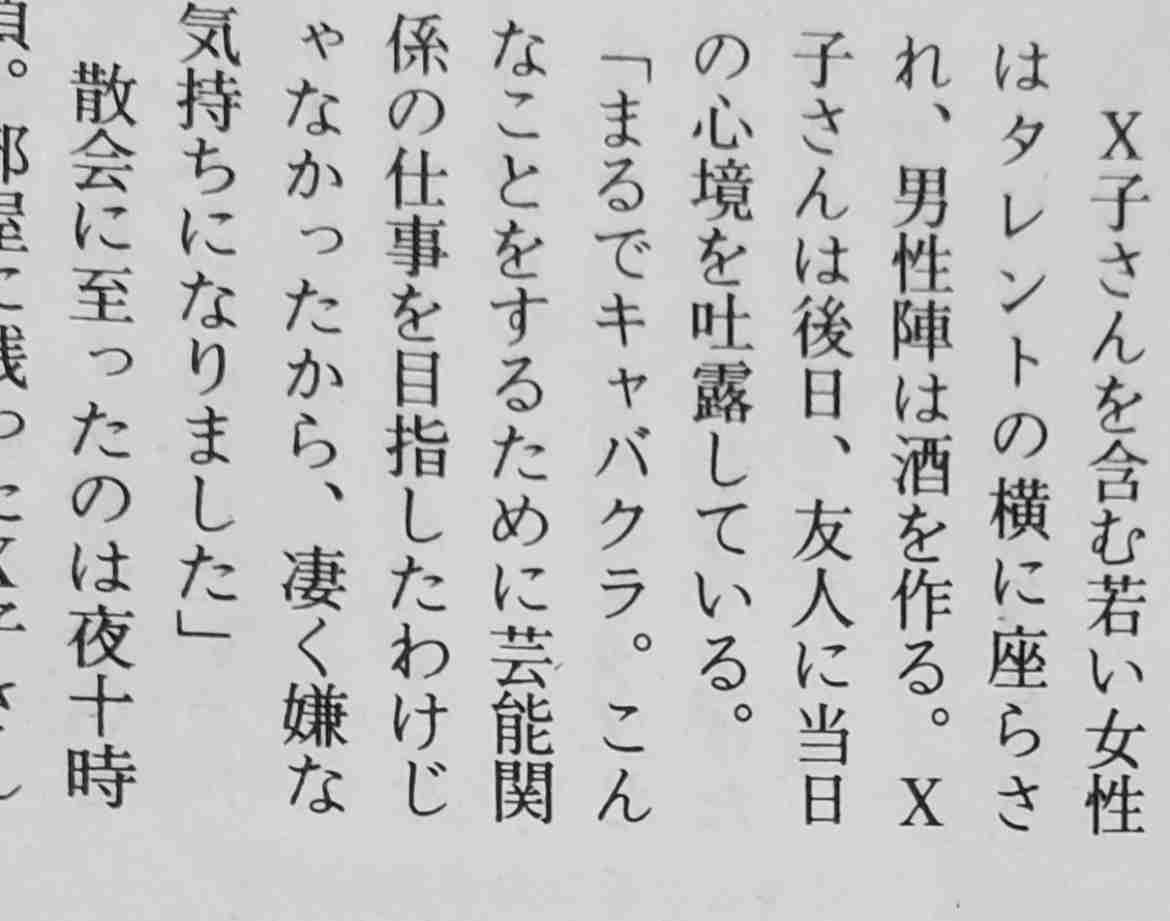 X子さんを含む若い女性
はタレントの横に座らさ
れ、男性陣は酒を作る。X
子さんは後日、友人に当日
の心境を吐露している。
「まるでキャバクラ。こん
なことをするために芸能関
係の仕事を目指したわけじ
ゃなかったから、凄く嫌な
気持ちになりました」
散会に至ったのは夜十時